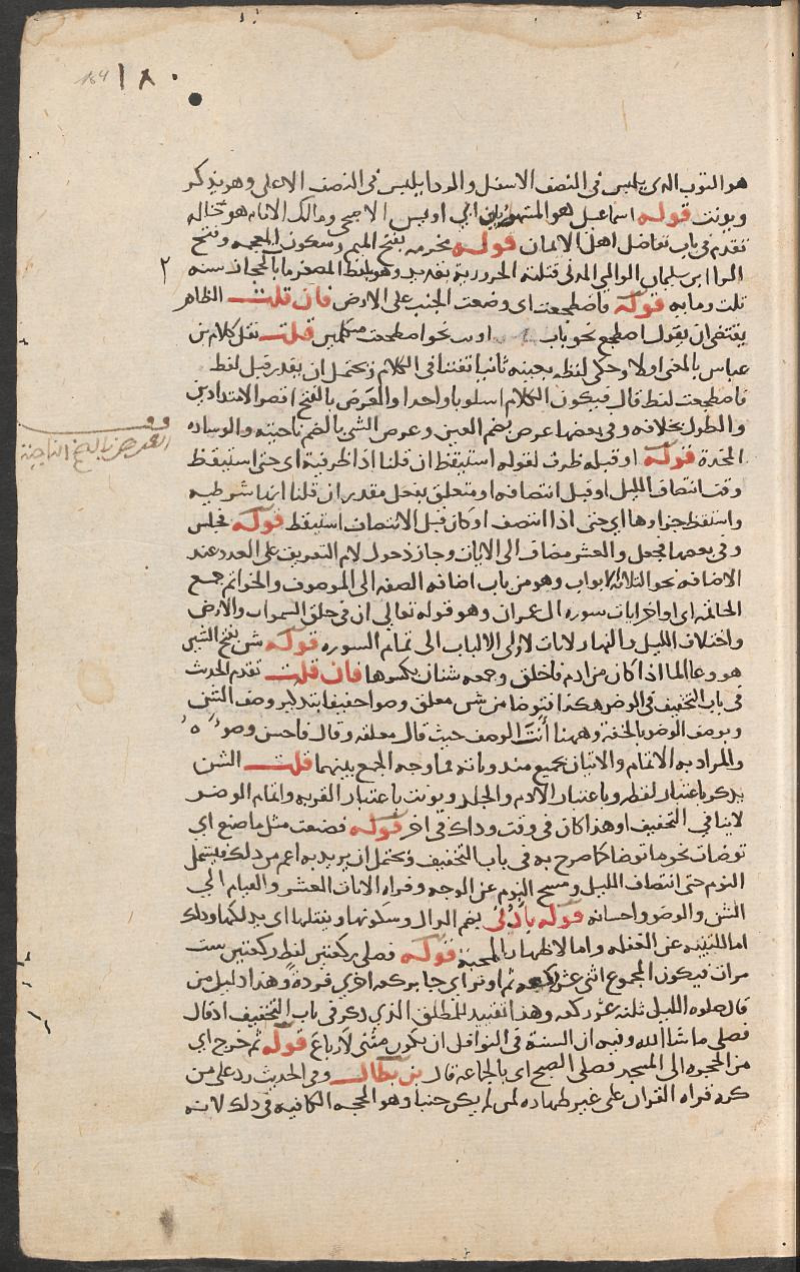 ١٨٠
164
هو الثوب الذي يلبس في النصف الاسفل والردا يلبس في النصف الاعلى وهو يذكر
ويونث قوله اسماعيل هو المشهور بابن ابي اويس الاصبحي ومالك الامام هو خاله
تقدم في باب تفاضل اهل الايمان قوله مخرمه بفتح الميم وسكون المعجمه وفتح
الرا ابن سليمان الوالبي المدني قتلته الحرورية بقديد وهو بلفظ المصغر ما بالحجاز سنه
ثلث ومايه قوله فاضطجعت اى وضعت الجنب على الارض فان قلت الظاهر
يقتضى ان يقول اضطجع نحو بات او بت نحو اضطجعت قلت نقل كلام بن
عباس بالمعنى اولا وحكى لفظه بعينه ثانيا تفننا في الكلام ويحتمل ان يقدر قبل لفظ
فاضطجعت لفظ قال فيكون الكلام اسلوبا واحدا والعرض بالفتح اقصر الامتدادين
والطول بخلافه وفي بعضها عرض بضم العين وعرض الشى بالضم ناحيته والوساده
المخدة قوله او قبله ظرف لقوله استيقظ ان قلنا اذا ظرفية اى حتى استيقظ
وقت انتصاف الليل او قبل انتصافه او متعلق بفعل مقدر ان قلنا انها شرطيه
واستيقظ جزاوها اى حتى اذا انتصف او كان قبل الانتصاف استيقظ قوله فجلس
وفي بعضها فجعل والعشر مضاف الى الايات وجاز دخول لام التعريف على العدد عند
الاضافه نحو الثلاثة الابواب وهو من باب اضافه الصفه الى الموصوف والخواتم جمع
الخاتمه اى اواخر ايات سوره ال عمران وهو قوله تعالى ان في خلق السموات والارض
واختلاف الليل والنهار لايات لاولى الالباب الى تمام السوره قوله شن بفتح الشين
هو وعا الما اذا كان من ادم فاخلق وجمعه شنان بكسرها فان قلت تقدم الحديث
في باب التخفيف في الوضو هكذا فتوضا من شن معلق وضوا خفيفا بتذكير وصف الشن
وبوصف الوضو بالخفة وههنا أنّث الوصف حيث قال معلقه وقال فاحسن وضوءه
والمراد به الاتمام والاتيان بجميع مندوباته فما وجه الجمع بينهما قلت الشن
يذكر باعتبار لفظه وباعتبار الادم والجلد ويونث باعتبار القربه واتمام الوضو
لاينافي التخفيف او هذا كان في وقت وذاك في اخر قوله فصنعت مثل ما صنع اي
توضات نحو ما توضا كما صرح به في باب التخفيف ويحتمل ان يريد به اعم من ذلك فيشمل
النوم حتى انتصاف الليل ومسح النوم عن الوجه وقراه الايات العشر والقيام الى
الشن والوضو واحسانه قوله باذنى بضم الذال وسكونها ويفتلها اى يدلكها وذلك
اما للتنبيه عن الغفله واما لاظهار المحبة قوله فصلى ركعتين لفظ ركعتين ست
مرات فيكون المجموع اثنى عشر ركعه ثم اوتر اي جا بركعه اخرى فردة وهذا دليل من
قال صلوه الليل ثلثه عشر ركعه وهذا تقييد للمطلق الذي ذكر في باب التخفيف اذ قال
فصلى ما شا الله وفيه ان السنة في النوافل ان يكون مثنى لا رباع قوله ثم خرج اى
من الحجره الى المسجد فصلى الصبح اى بالجماعه قال بن بطال وفي الحديث رد على من
كره قراه القران على غير طهاره لمن لم يكن جنبا وهو الحجه الكافيه في ذلك لانه
٢
وقف
العرض بالفتح الناحية